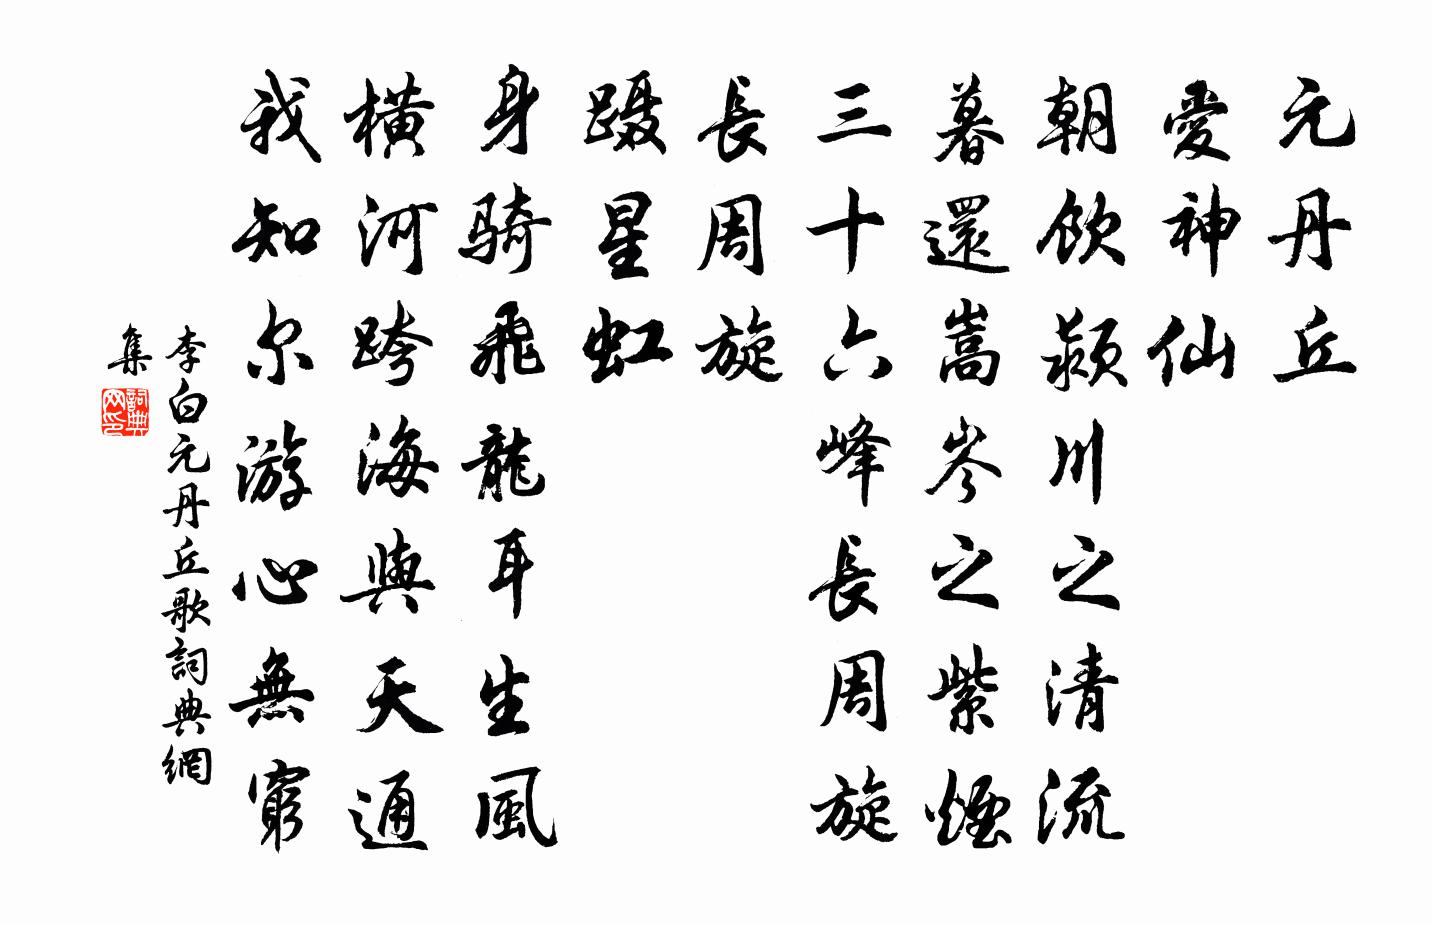 元丹丘
愛神仙
朝飲潁川之清流
暮還嵩岑之紫煙
三十六峰長周旋
長周旋
蹑星虹
身騎飛龍耳生風
橫河跨海與天通
我知尔游心無窮
李白元丹丘歌詞典網
集
詞典
网印